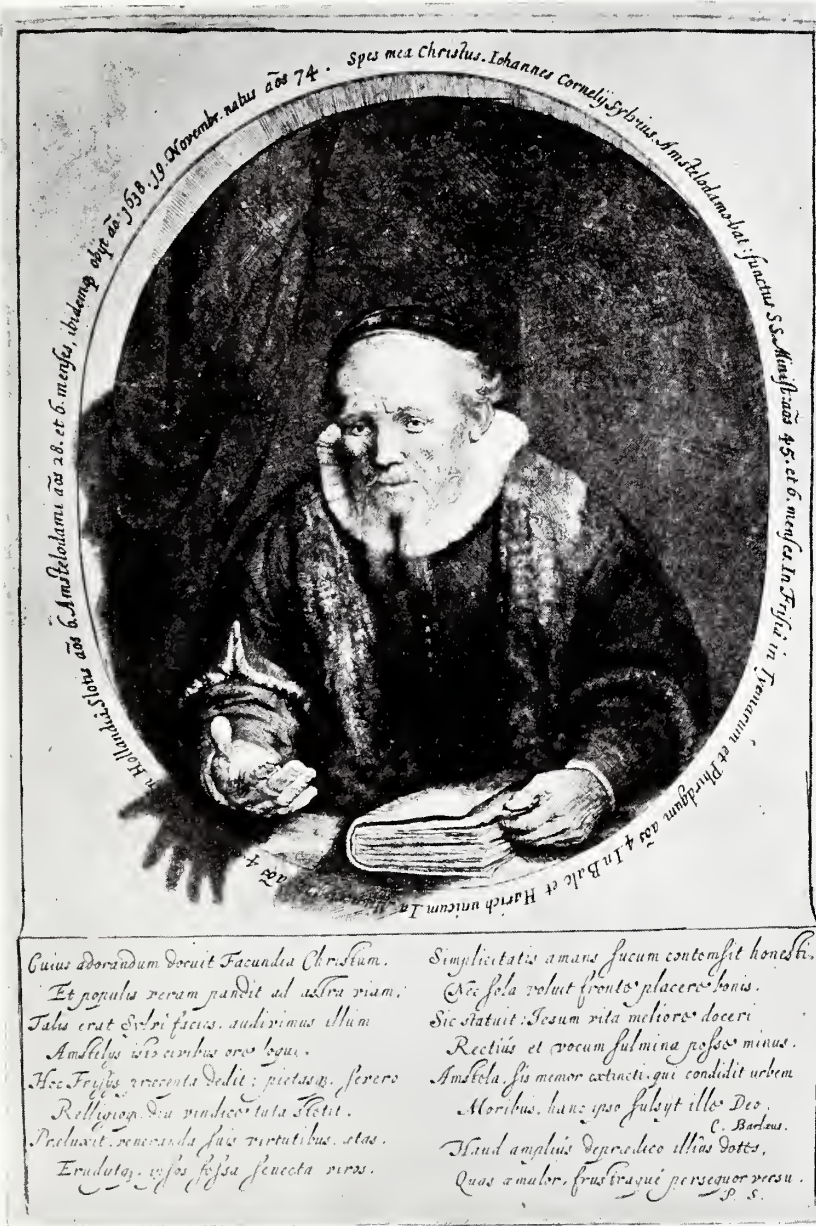 Spes mea Christus. Iohannes Cornelij Sylvius, Amstelodamobat: functus S.S. Minist: aōs 45. et 6. menses. In Frisiâ in Tyemarum et Phirdgum aōs 4 In Balc et Harich unicum In aōs 4 In Hollandiâ Slotis aōs 6. Amstelodami aōs 28. et 6. menses, ibidemq obijt aō: 1638. 19. Novembr. natus aōs 74.
Cuius adorandum docuit Facundia Christum.
Et populis veram pandit ad astra viam,
Talis erat Sylvi facies. audivimus illum
Amstelijs isto civibus ore loqui.
Hoc Frisijs præcepta dedit; pietasq. severo
Relligioq. diu vindice tuta stetit.
Præluxit, veneranda suis virtutibus, ætas.
Erudijtq. ipsos fessa senecta viros.
Simplicitatis amans fucum contemsit honesti,
Nec sola voluit fronte placere bonis.
Sic statuit: Iesum vita meliore doceri
Rectiùs et vocum fulmina posse minus.
Amstela, sis memor extincti qui condidit urbem
Moribus, hanc ipso fulsijt ille Deo.
C. Barlæus.
Haud ampliùs deprædico illius dotes,
Quas æmulor, frustraque persequor versu.
P. S.